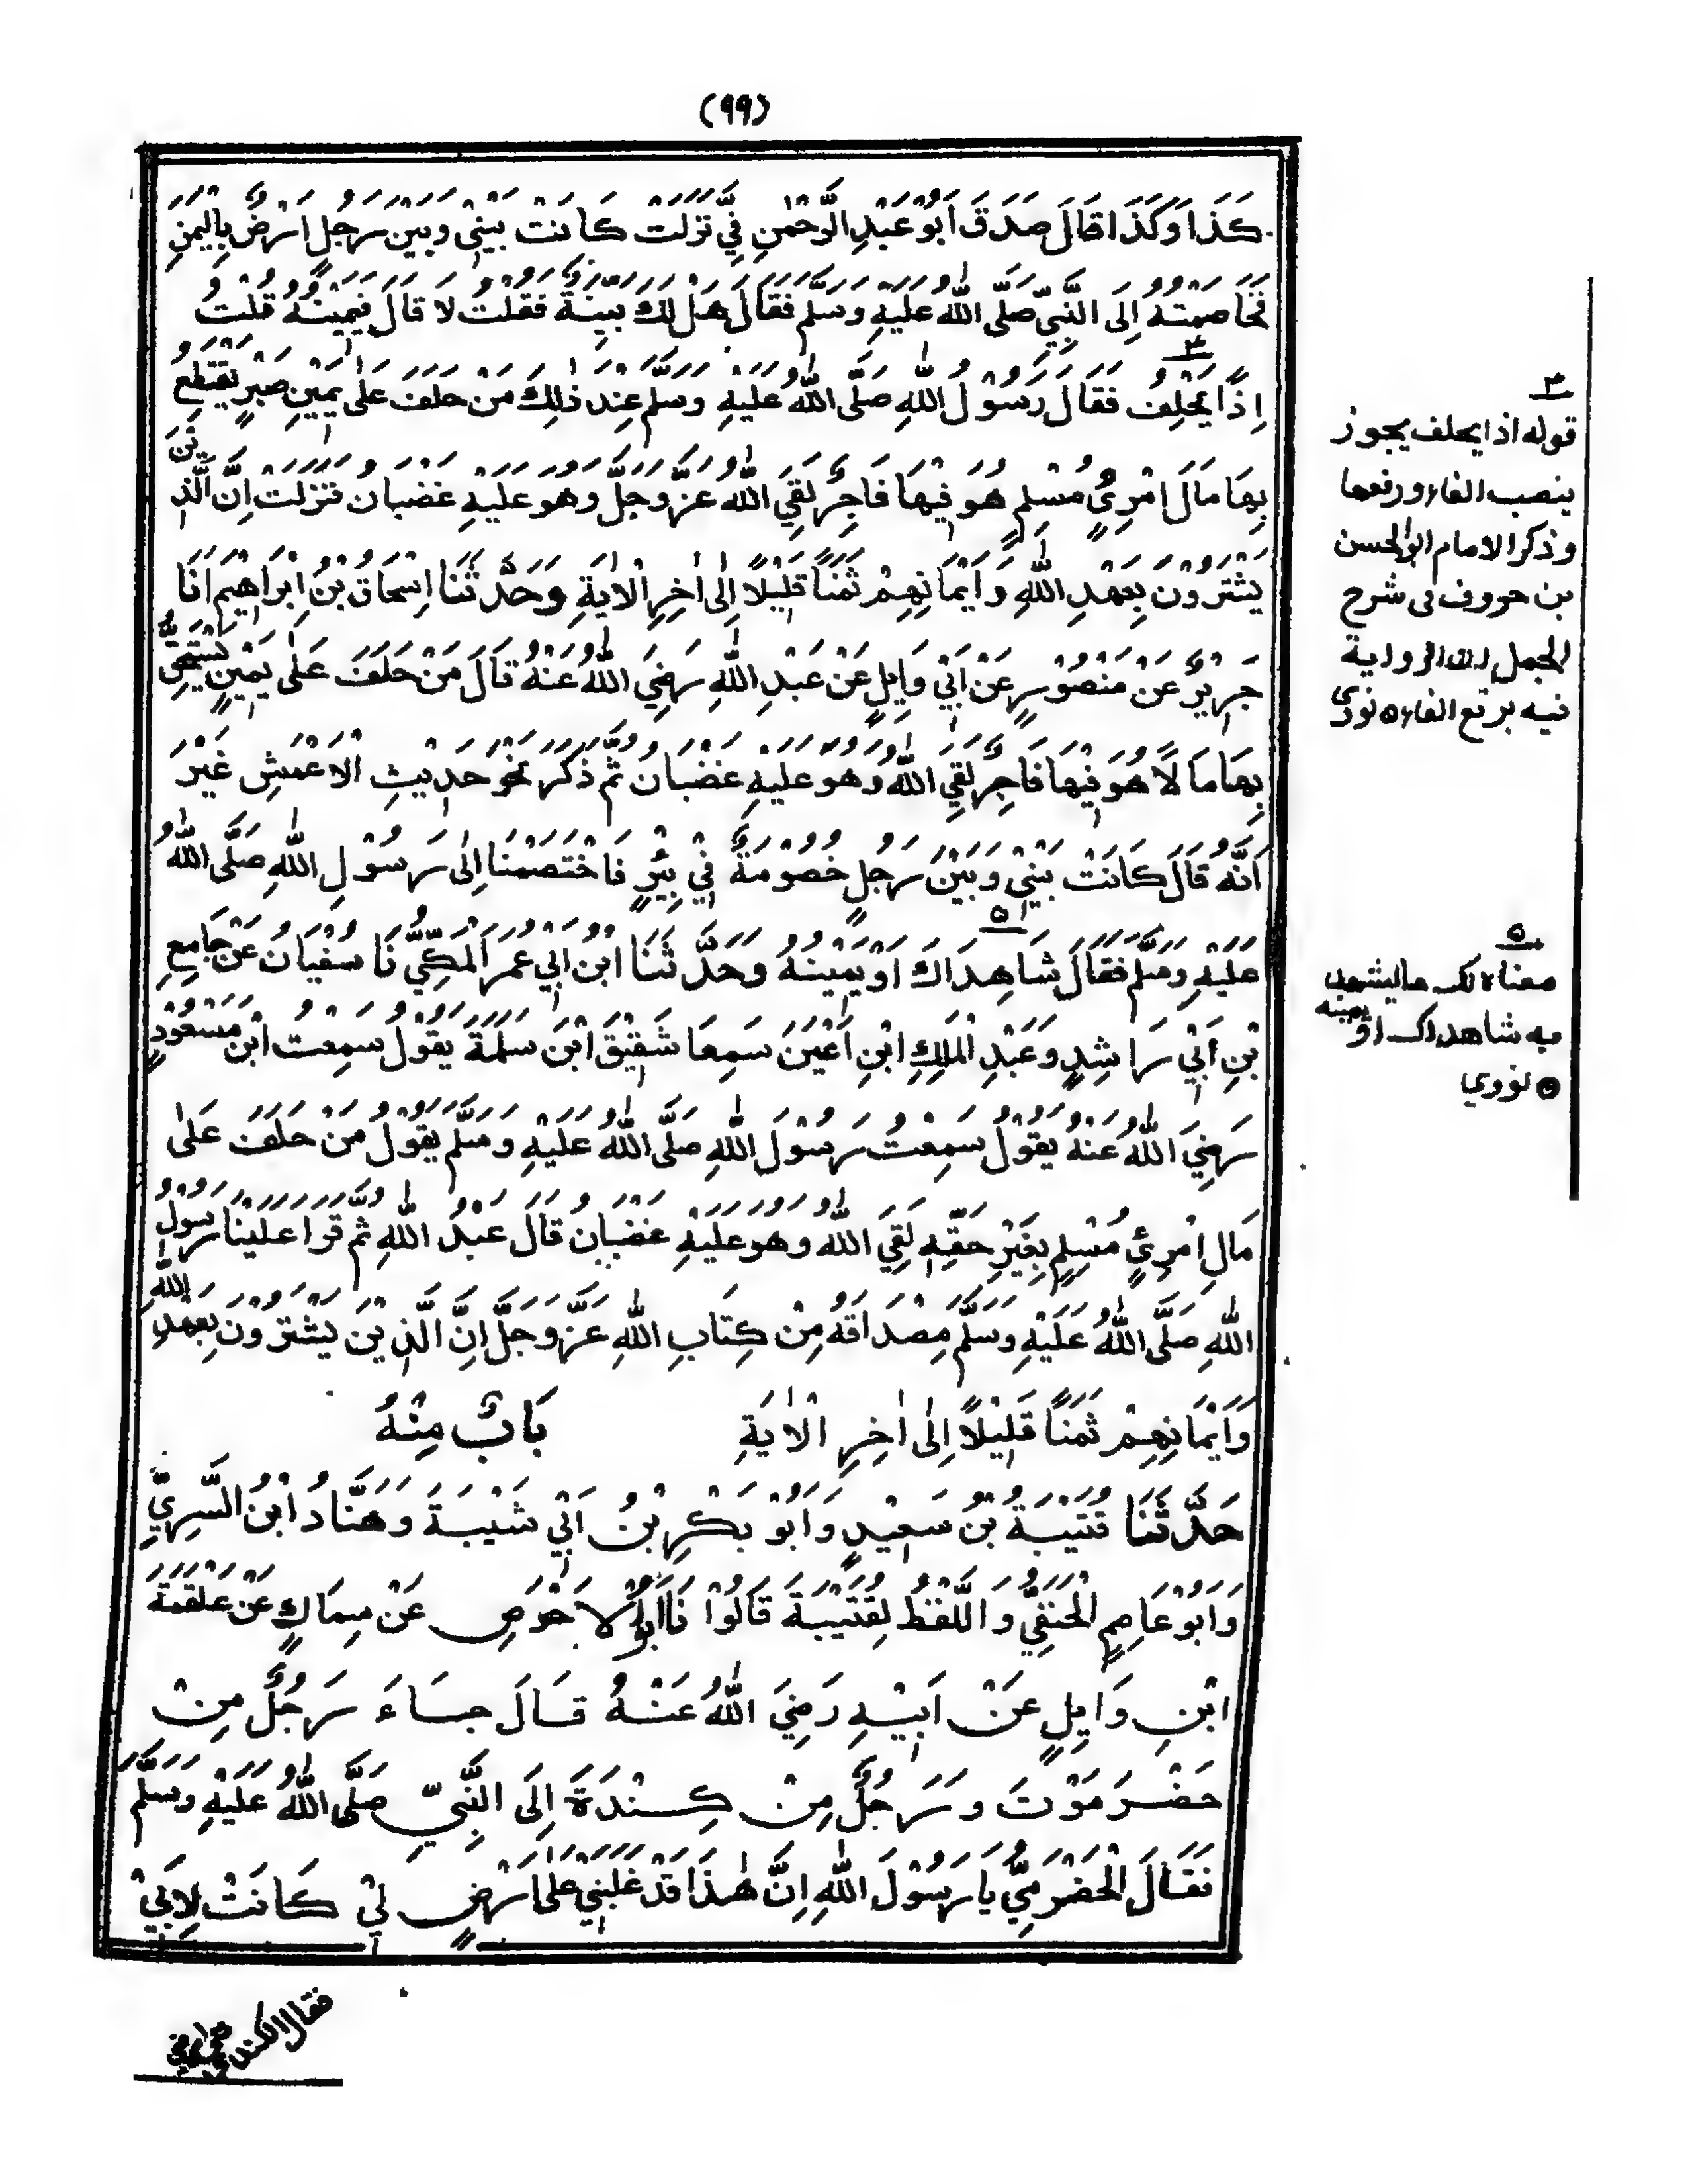 (٩٩)
كَذَا وَكَذَا قَالَ صَدَقَ اَبُوْ عَبْدِ الرَّحْمٰنِ فِيَّ نَزَلَتْ كَانَتْ بَيْنِيْ وَبَيْنَ رَجُلٍ اَرْضٌ بِالْيَمَنِ
فَخَاصَمْتُهُ اِلَى النَّبِيِّ صَلَّى اللّٰهُ عَلَيْهِ وَسَلَّمَ فَقَالَ هَلْ لَكَ بَيِّنَةٌ فَقُلْتُ لَا قَالَ فَيَمِيْنُهُ قُلْتُ
اِذًا يَحْلِفُ فَقَالَ رَسُوْلُ اللّٰهِ صَلَّى اللّٰهُ عَلَيْهِ وَسَلَّمَ عِنْدَ ذٰلِكَ مَنْ حَلَفَ عَلٰى يَمِيْنِ صَبْرٍ يَقْتَطِعُ
بِهَا مَالَ امْرِئٍ مُسْلِمٍ هُوَ فِيْهَا فَاجِرٌ لَقِيَ اللّٰهَ عَزَّ وَجَلَّ وَهُوَ عَلَيْهِ غَضْبَانُ فَنَزَلَتْ اِنَّ الَّذِيْنَ
يَشْتَرُوْنَ بِعَهْدِ اللّٰهِ وَاَيْمَانِهِمْ ثَمَنًا قَلِيْلًا اِلٰى اٰخِرِ الْاٰيَةِ وَحَدَّثَنَا اِسْحَاقُ بْنُ اِبْرَاهِيْمَ اَنَا
جَرِيْرٌ عَنْ مَنْصُوْرٍ عَنْ اَبِيْ وَايِلٍ عَنْ عَبْدِ اللّٰهِ رَضِيَ اللّٰهُ عَنْهُ قَالَ مَنْ حَلَفَ عَلٰى يَمِيْنٍ يَسْتَحِقُّ
بِهَا مَالًا هُوَ فِيْهَا فَاجِرٌ لَقِيَ اللّٰهَ وَهُوَ عَلَيْهِ غَضْبَانُ ثُمَّ ذَكَرَ نَحْوَ حَدِيْثِ الْاَعْمَشِ غَيْرَ
اَنَّهُ قَالَ كَانَتْ بَيْنِيْ وَبَيْنَ رَجُلٍ خُصُوْمَةٌ فِيْ بِئْرٍ فَاخْتَصَمْنَا اِلٰى رَسُوْلِ اللّٰهِ صَلَّى اللّٰهُ
عَلَيْهِ وَسَلَّمَ فَقَالَ شَاهِدَاكَ اَوْ يَمِيْنُهُ وَحَدَّثَنَا ابْنُ اَبِيْ عُمَرَ الْمَكِّيُّ نَا سُفْيَانُ عَنْ جَامِعِ
بْنِ اَبِيْ رَاشِدٍ وَعَبْدِ الْمَلِكِ ابْنِ اَعْيَنَ سَمِعَا شَقِيْقَ ابْنَ سَلَمَةَ يَقُوْلُ سَمِعْتُ ابْنَ مَسْعُوْدٍ
رَضِيَ اللّٰهُ عَنْهُ يَقُوْلُ سَمِعْتُ رَسُوْلَ اللّٰهِ صَلَّى اللّٰهُ عَلَيْهِ وَسَلَّمَ يَقُوْلُ مَنْ حَلَفَ عَلٰى
مَالِ امْرِئٍ مُسْلِمٍ بِغَيْرِ حَقِّهِ لَقِيَ اللّٰهَ وَهُوَ عَلَيْهِ غَضْبَانُ قَالَ عَبْدُ اللّٰهِ ثُمَّ قَرَا عَلَيْنَا رَسُوْلُ
اللّٰهِ صَلَّى اللّٰهُ عَلَيْهِ وَسَلَّمَ مِصْدَاقَهُ مِنْ كِتَابِ اللّٰهِ عَزَّ وَجَلَّ اِنَّ الَّذِيْنَ يَشْتَرُوْنَ بِعَهْدِ اللّٰهِ
وَاَيْمَانِهِمْ ثَمَنًا قَلِيْلًا اِلٰى اٰخِرِ الْاٰيَةِ بَابٌ مِنْهُ
حَدَّثَنَا قُتَيْبَةُ بْنُ سَعِيْدٍ وَاَبُوْ بَكْرِ بْنُ اَبِيْ شَيْبَةَ وَهَنَّادُ ابْنُ السَّرِيِّ
وَاَبُوْ عَاصِمٍ الْحَنَفِيُّ وَاللَّفْظُ لِقُتَيْبَةَ قَالُوْا نَا اَبُو الْاَحْوَصِ عَنْ سِمَاكٍ عَنْ عَلْقَمَةَ
ابْنِ وَايِلٍ عَنْ اَبِيْهِ رَضِيَ اللّٰهُ عَنْهُ قَالَ جَاءَ رَجُلٌ مِنْ
حَضْرَمَوْتَ وَرَجُلٌ مِنْ كِنْدَةَ اِلَى النَّبِيِّ صَلَّى اللّٰهُ عَلَيْهِ وَسَلَّمَ
فَقَالَ الْحَضْرَمِيُّ يَا رَسُوْلَ اللّٰهِ اِنَّ هٰذَا قَدْ غَلَبَنِيْ عَلٰى اَرْضٍ لِيْ كَانَتْ لِاَبِيْ
فقال الكندي هي ارضي
٤
قوله اذا يحلف يجوز
بنصب الفاء ورفعها
وذكر الامام ابو الحسن
بن خروف في شرح
الجمل ان الرواية
فيه برفع الفاء ٥ نووى
٥
معناه لك ما يشهد
به شاهداك او يمينه
٥ نووي